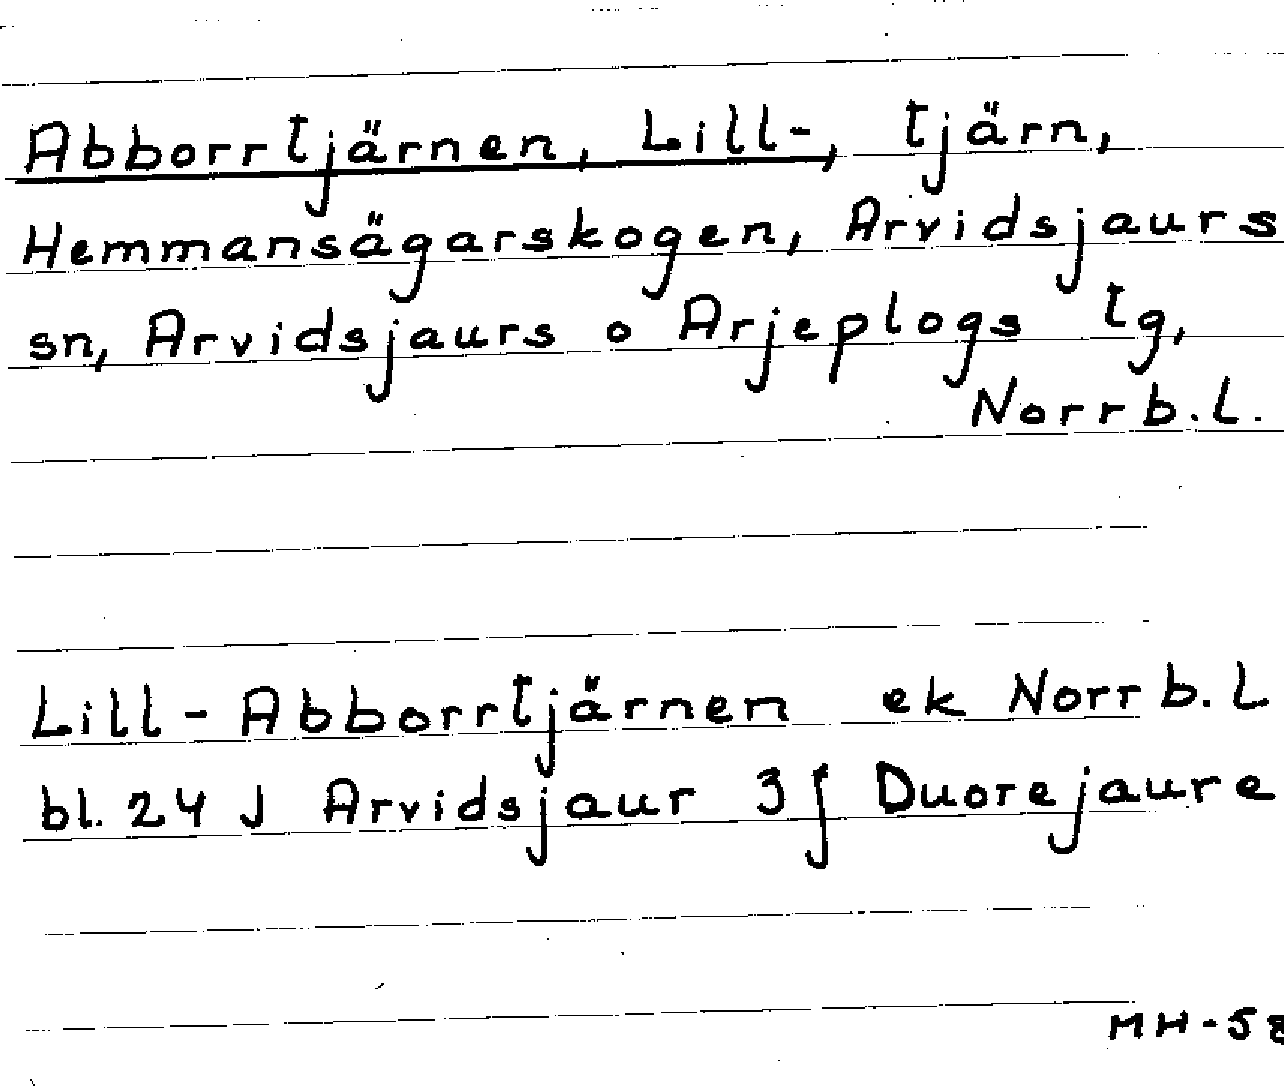 Abborrtjärnen, Lill-, tjärn,
Hemmansägarskogen, Arvidsjaurs
sn, Arvidsjaurs o Arjeplogs tg,
Norrb.l.
Lill-Abborrtjärnen ek Norrb.l
bl. 24 J Arvidsjaur 3 f Duorejaure
MH-58